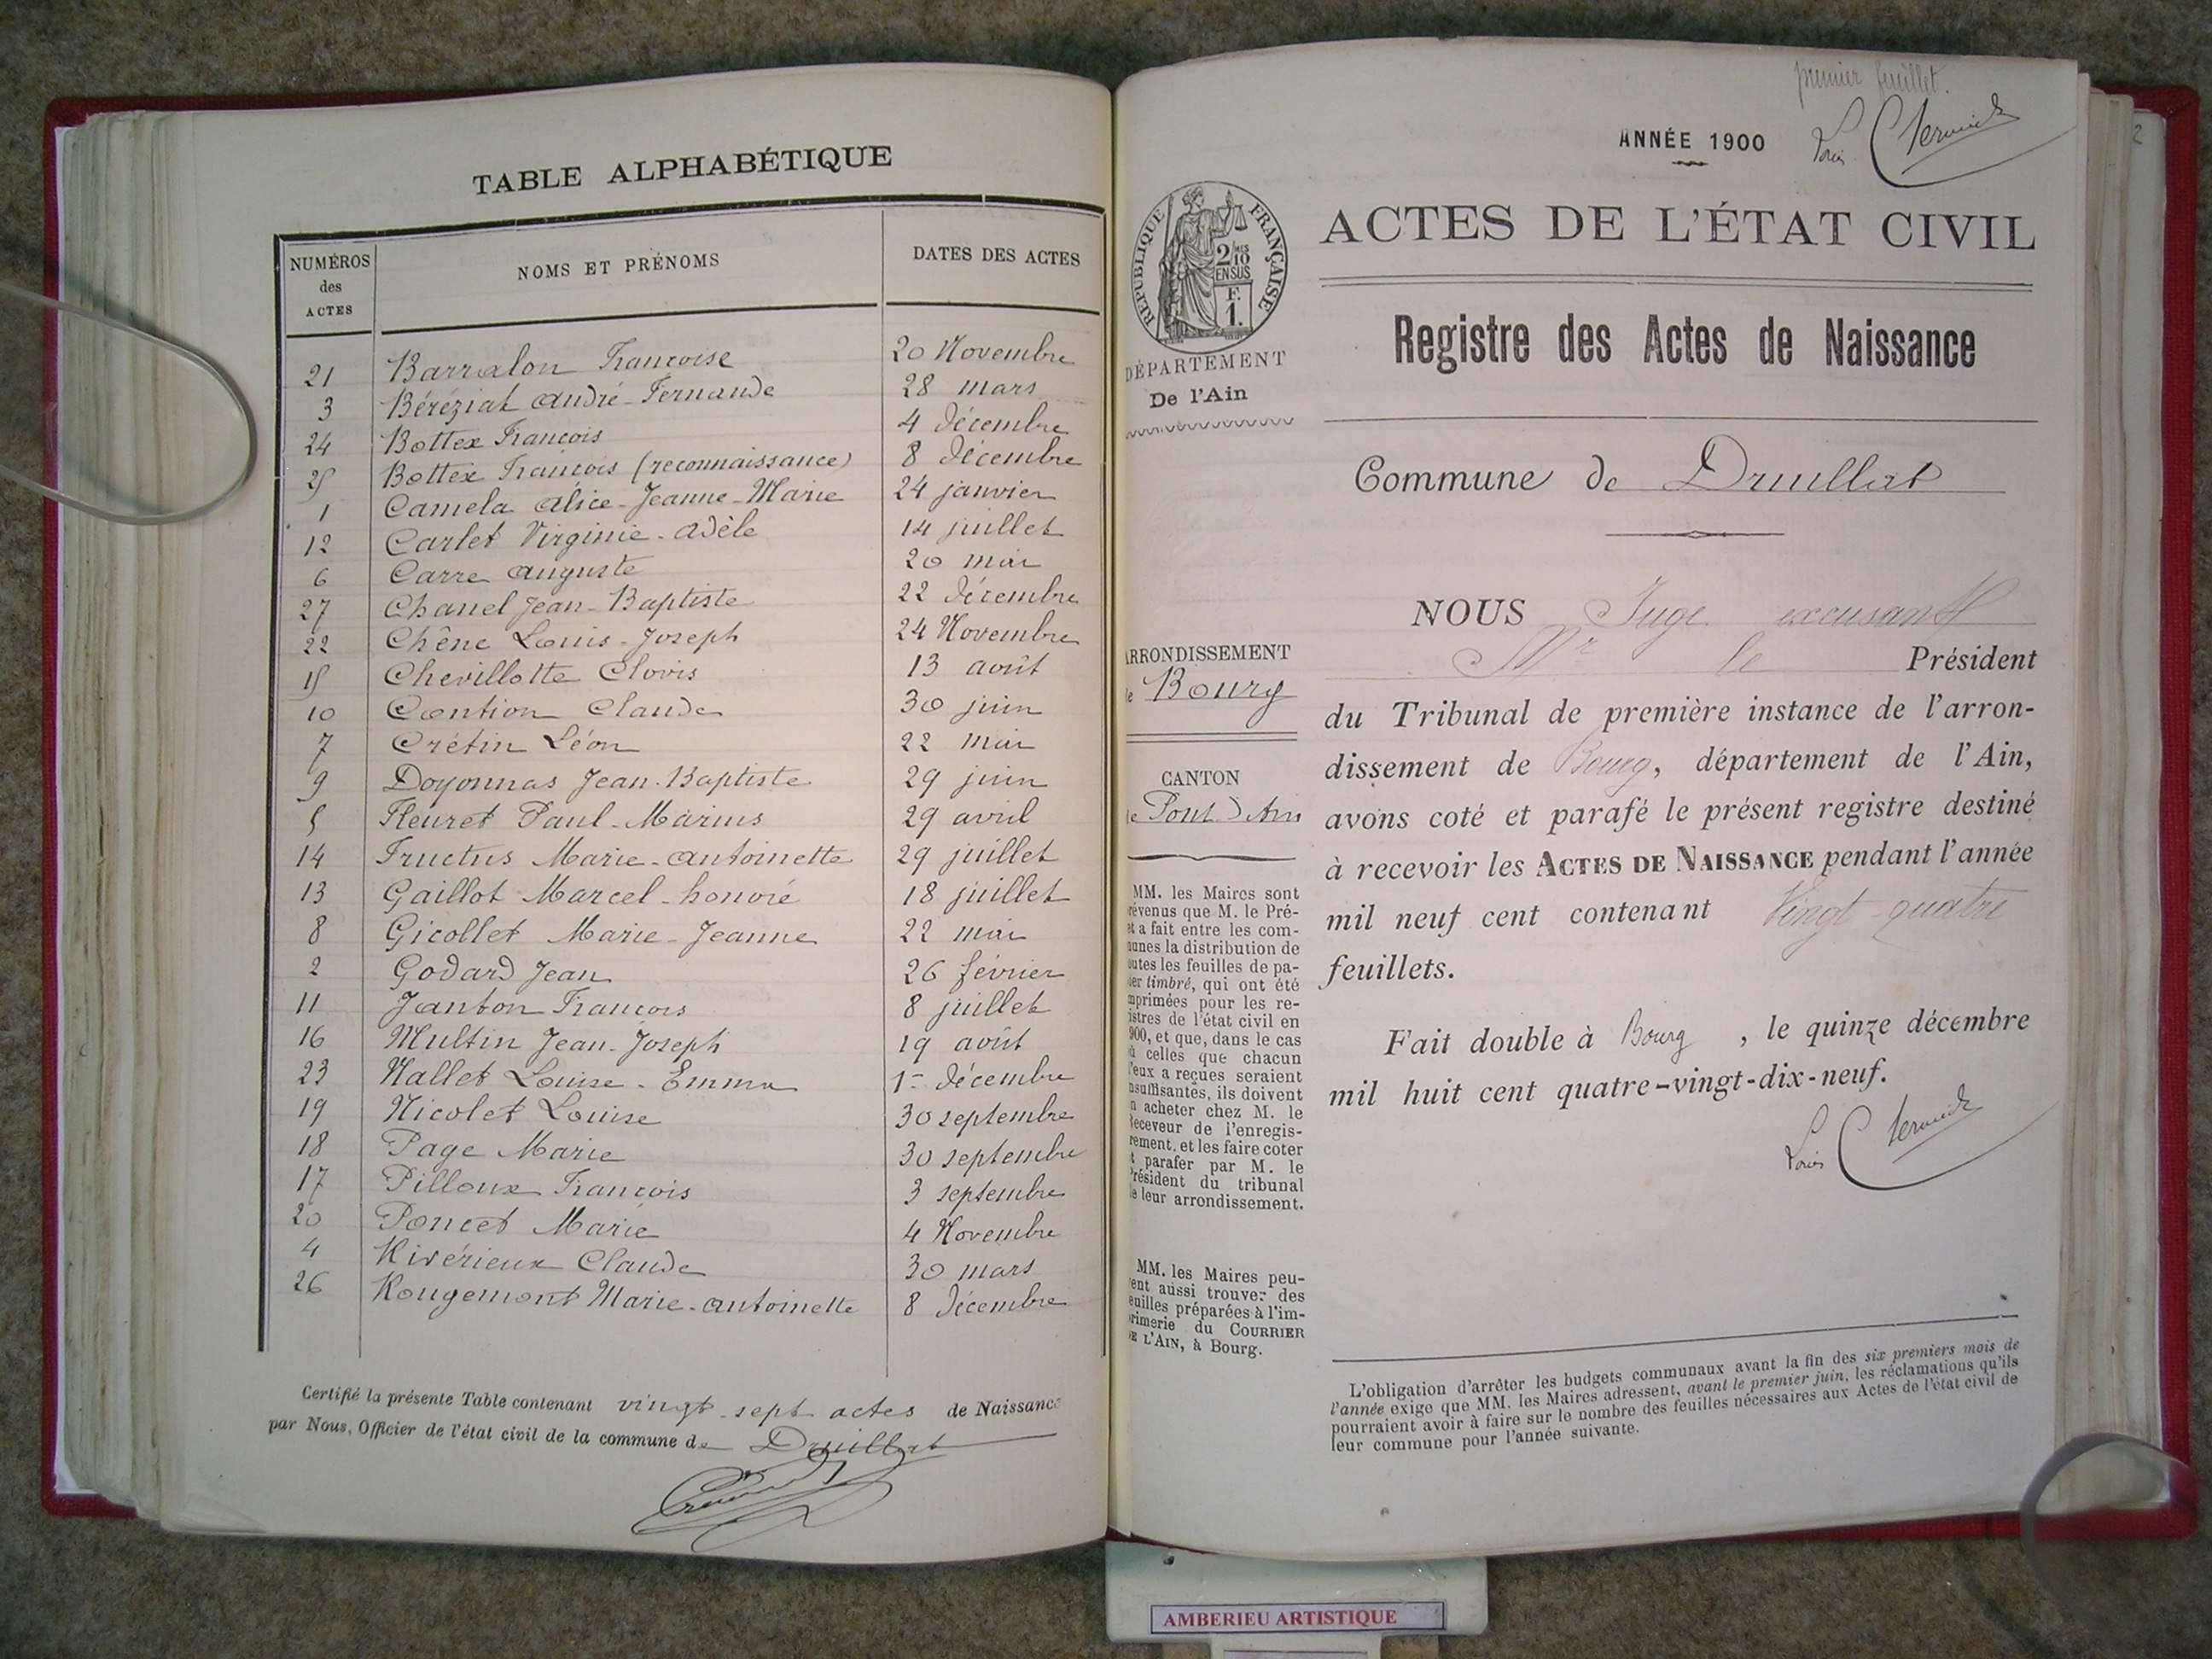 TABLE ALPHABÉTIQUE
NUMÉROS des ACTES NOMS ET PRÉNOMS DATES DES ACTES
21 Barralon Françoise 20 Novembre
3 Béréziat André-Fernande 28 mars
24 Bottex François 4 décembre
25 Bottex François (reconnaissance) 8 décembre
1 Camela Alice-Jeanne-Marie 24 janvier
12 Carlet Virginie-Adèle 14 juillet
6 Carre Auguste 20 mai
27 Chanel Jean-Baptiste 22 décembre
22 Chêne Louis-Joseph 24 Novembre
15 Chevillotte Clovis 13 août
10 Contion Claude 30 juin
7 Crétin Léon 22 mai
9 Doyonnas Jean-Baptiste 29 juin
5 Fleuret Paul-Marius 29 avril
14 Fructus Marie-Antoinette 29 juillet
13 Gaillot Marcel-honoré 18 juillet
8 Gicollet Marie-Jeanne 22 mai
2 Godard Jean 26 février
11 Janton François 8 juillet
16 Multin Jean-Joseph 19 août
23 Nallet Louise-Emma 1er décembre
19 Nicolet Louise 30 septembre
18 Page Marie 30 septembre
17 Pilloux François 3 septembre
20 Poncet Marie 4 Novembre
4 Rivérieux Claude 30 mars
26 Rougemont Marie-Antoinette 8 décembre
Certifié la présente Table contenant vingt-sept actes de Naissance
par Nous, Officier de l'état civil de la commune de Druillat
premier feuillet.
ANNÉE 1900
Louis
RÉPUBLIQUE FRANÇAISE
2/10 MES
EN SUS
F.
1.
ACTES DE L'ÉTAT CIVIL
Registre des Actes de Naissance
DÉPARTEMENT
De l'Ain
Commune de Druillat
NOUS Juge excusant
Mr le Président
du Tribunal de première instance de l'arron-
dissement de Bourg, département de l'Ain,
avons coté et parafé le présent registre destiné
à recevoir les ACTES DE NAISSANCE pendant l'année
mil neuf cent contenant Vingt quatre
feuillets.
Fait double à Bourg, le quinze décembre
mil huit cent quatre-vingt-dix-neuf.
Louis
ARRONDISSEMENT
de Bourg
CANTON
de Pont d'Ain
MM. les Maires sont
prévenus que M. le Pré-
et a fait entre les com-
munes la distribution de
toutes les feuilles de pa-
pier timbré, qui ont été
imprimées pour les re-
gistres de l'état civil en
1900, et que, dans le cas
où celles que chacun
d'eux a reçues seraient
insuffisantes, ils doivent
en acheter chez M. le
Receveur de l'enregis-
trement, et les faire coter
et parafer par M. le
Président du tribunal
de leur arrondissement.
MM. les Maires peu-
vent aussi trouver des
feuilles préparées à l'im-
primerie du COURRIER
DE L'AIN, à Bourg.
L'obligation d'arrêter les budgets communaux avant la fin des six premiers mois de
l'année exige que MM. les Maires adressent, avant le premier juin, les réclamations qu'ils
pourraient avoir à faire sur le nombre des feuilles nécessaires aux Actes de l'état civil de
leur commune pour l'année suivante.
2
AMBERIEU ARTISTIQUE